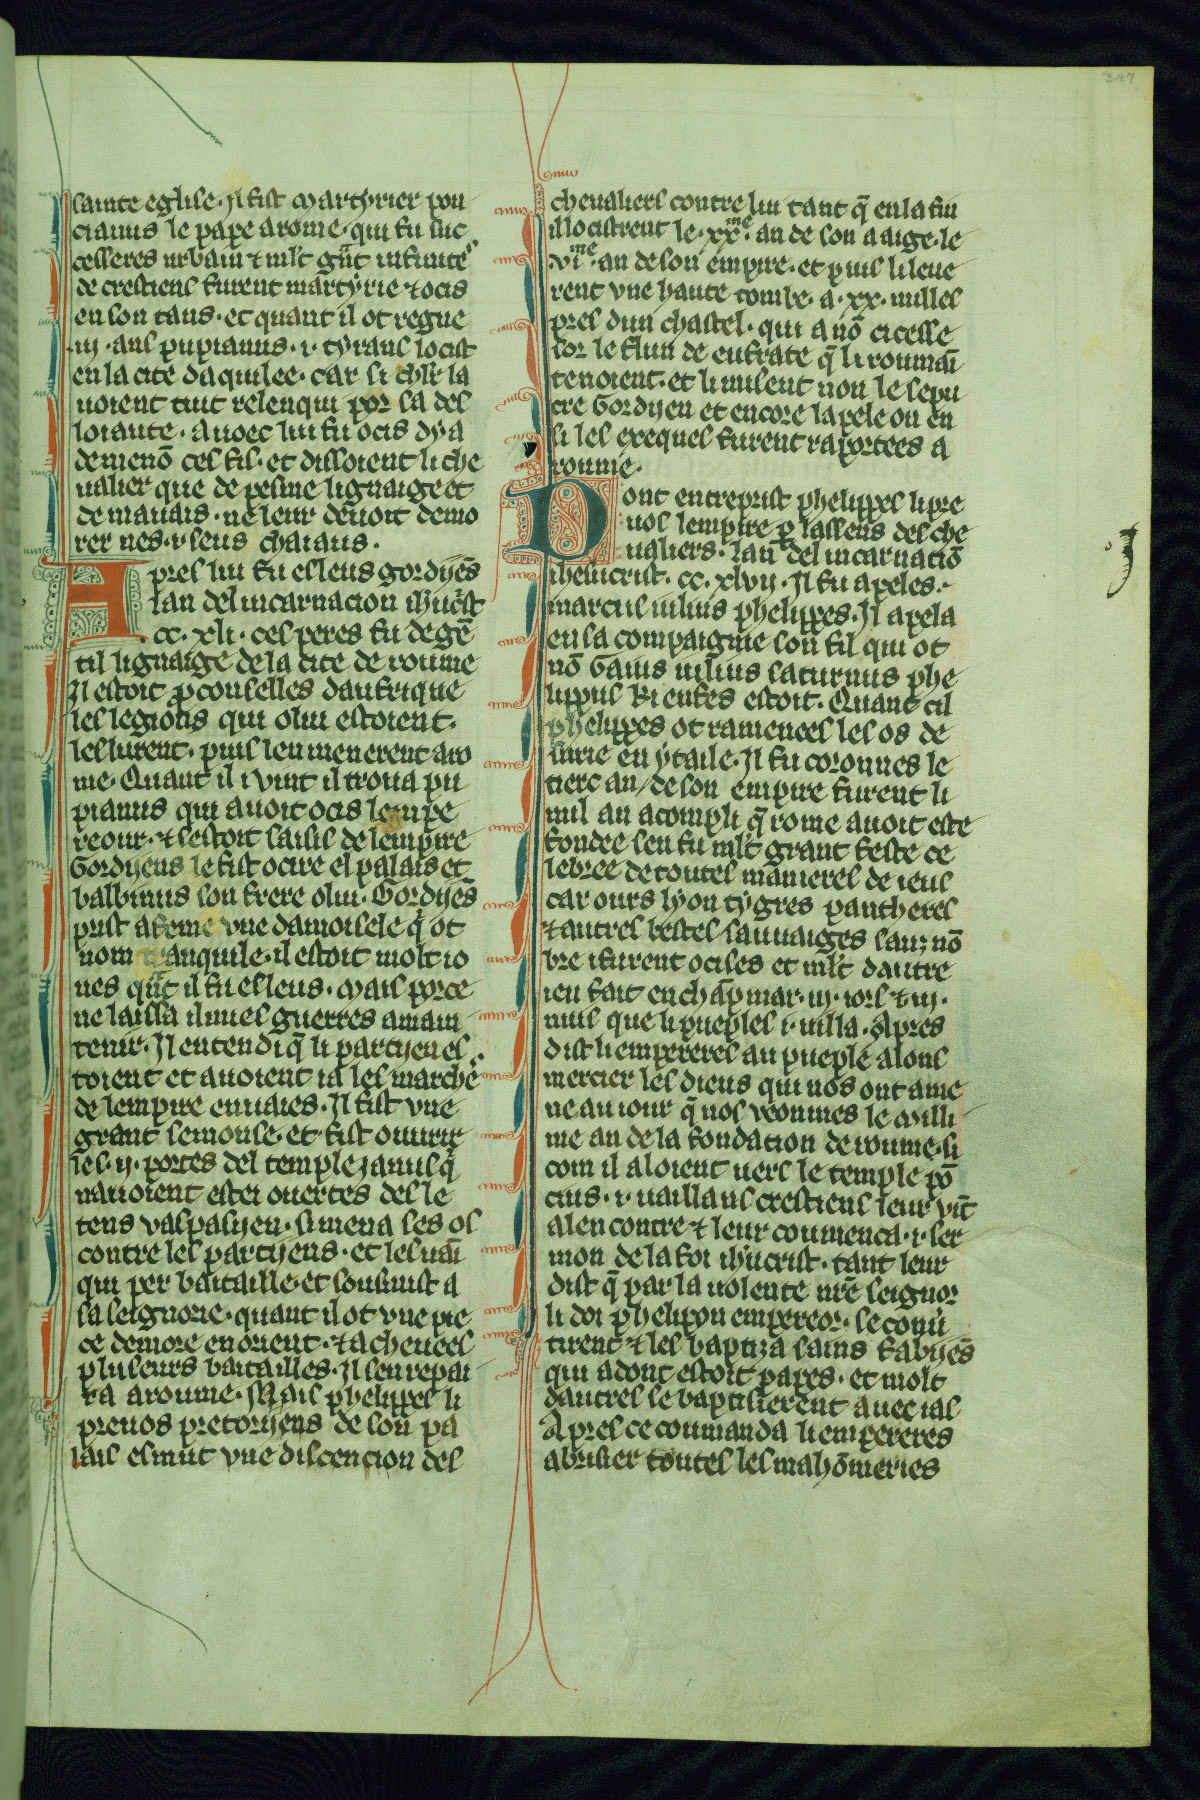 347
sainte eglise· Jl fist martyrier pon
cianus le pape a rome· qui fu suc
cesseres urbain ⁊ ml't gñt infinite
de crestiens furent martyrie ⁊ ocis
en son tans· et quant il ot regne
·iij· ans pupianus ·i· tyrans locist
en la cite daquilee· car si chlr la
uoient tuit relenqui por sa des
loiaute· Auoec lui fu ocis dya
demenõ ces fil· et dissoient li che
ualier que de pesme lignaige et
de mauais· ne leur deuoit demo
rer nes ·i· seus chaiaus·
Apres lui fu esleus gordyẽs
lan del incarnacion ihũcrist
·cc· xli· ces peres fu de gẽ
til lignaige de la cite de roume
Jl estoit p̃conselles daufrique
les legions qui o lui estoient·
leslurent· puis len menerent a ro
me· Quant il i vint il troua pu
pianus qui auoit ocis lempe
reour· ⁊ sestoit saisis de lempire
Gordyens le fist ocire el palais et
balbinus son frere o lui· Gordyẽs
prist a feme vne damoisele q̃ ot
nom tranquile· il estoit molt io
nes q̃nt il fu esleus· Mais por ce
ne laissa il mies guerres a main
tenir· Jl entendi q̃ li partyen es
toient et auoient ia les marche
de lempire enuaies· Jl fist vne
grant semonse· et fist ouurir
les ·ij· portes del temple ianus q̃
nauoient estei ouertes des le
tens vaspasyen· si mena ses os
contre les partyens· et les uãi
qui per bataille· et sousmist a
sa seignorie· quant il ot vne pie
ce demore en orient· ⁊ acheuees
pluseurs batailles· Jl sen repai
ra a roume· Mais phelippes li
preuos pretoryens de son pa
lais esmut vne discencion des
cheualiers contre lui tant q̃ en la fin
il locistrent le ·xx·me an de son aaige· le
·vi·me an de son empire· et puis li leue
rent vne haute tombe· a ·xx· milles
pres dun chastel· qui a nõ cicesse
sor le flun de eufrate q̃ li roumãi
tenoient· et li misent non le sepu
cre Gordyen et encore lapele on en
si les exeques furent raportees a
roume·
Dont entreprist phelippes li pre
uos lempire p lassens des che
ualiers· lan del incarnatiõ
ihesucrist· cc· xlvij· Jl fu apeles·
marcus iulius phelippes· Jl apela
en sa compaignie son fil qui ot
nõ Gaius iulius saturnus phe
lippus ki enfes estoit· Quant cil
phelippes ot ramenees les os de
surie en ytaile· Jl fu coronnes le
tierc an de son empire furent li
mil an acompli q̃ rome auoit este
fondee sen fu ml't grant feste ce
lebree de toutes manieres de ieus
car ours lyon tygres pantheres
⁊ autres bestes sauuaiges sanz nõ
bre i furent ocises et ml't dautre
ieu fait en chãp mar· iij· iors ⁊ iij·
nuis que li pueples i uilla· Apres
dist li empereres au pueple alons
mercier les dieus qui nos ont ame
ne au iour q̃ nos veommes le milli
me an de la fondation de roume· si
com il aloient uers le temple põ
cius ·i· uaillans crestiens leur vĩt
alencontre ⁊ leur coumenca ·i· ser
mon de la foi ihũcrist· tant leur
dist q̃ par la uolente nr̃e seignor
li doi phelippon empereor· se conũ
tirent ⁊ les baptiza sains fabyẽs
qui adont estoit papes· et molt
dautres se baptisierent auec ials
Apres ce coumanda li empereres
a brisier toutes les mahõmeries